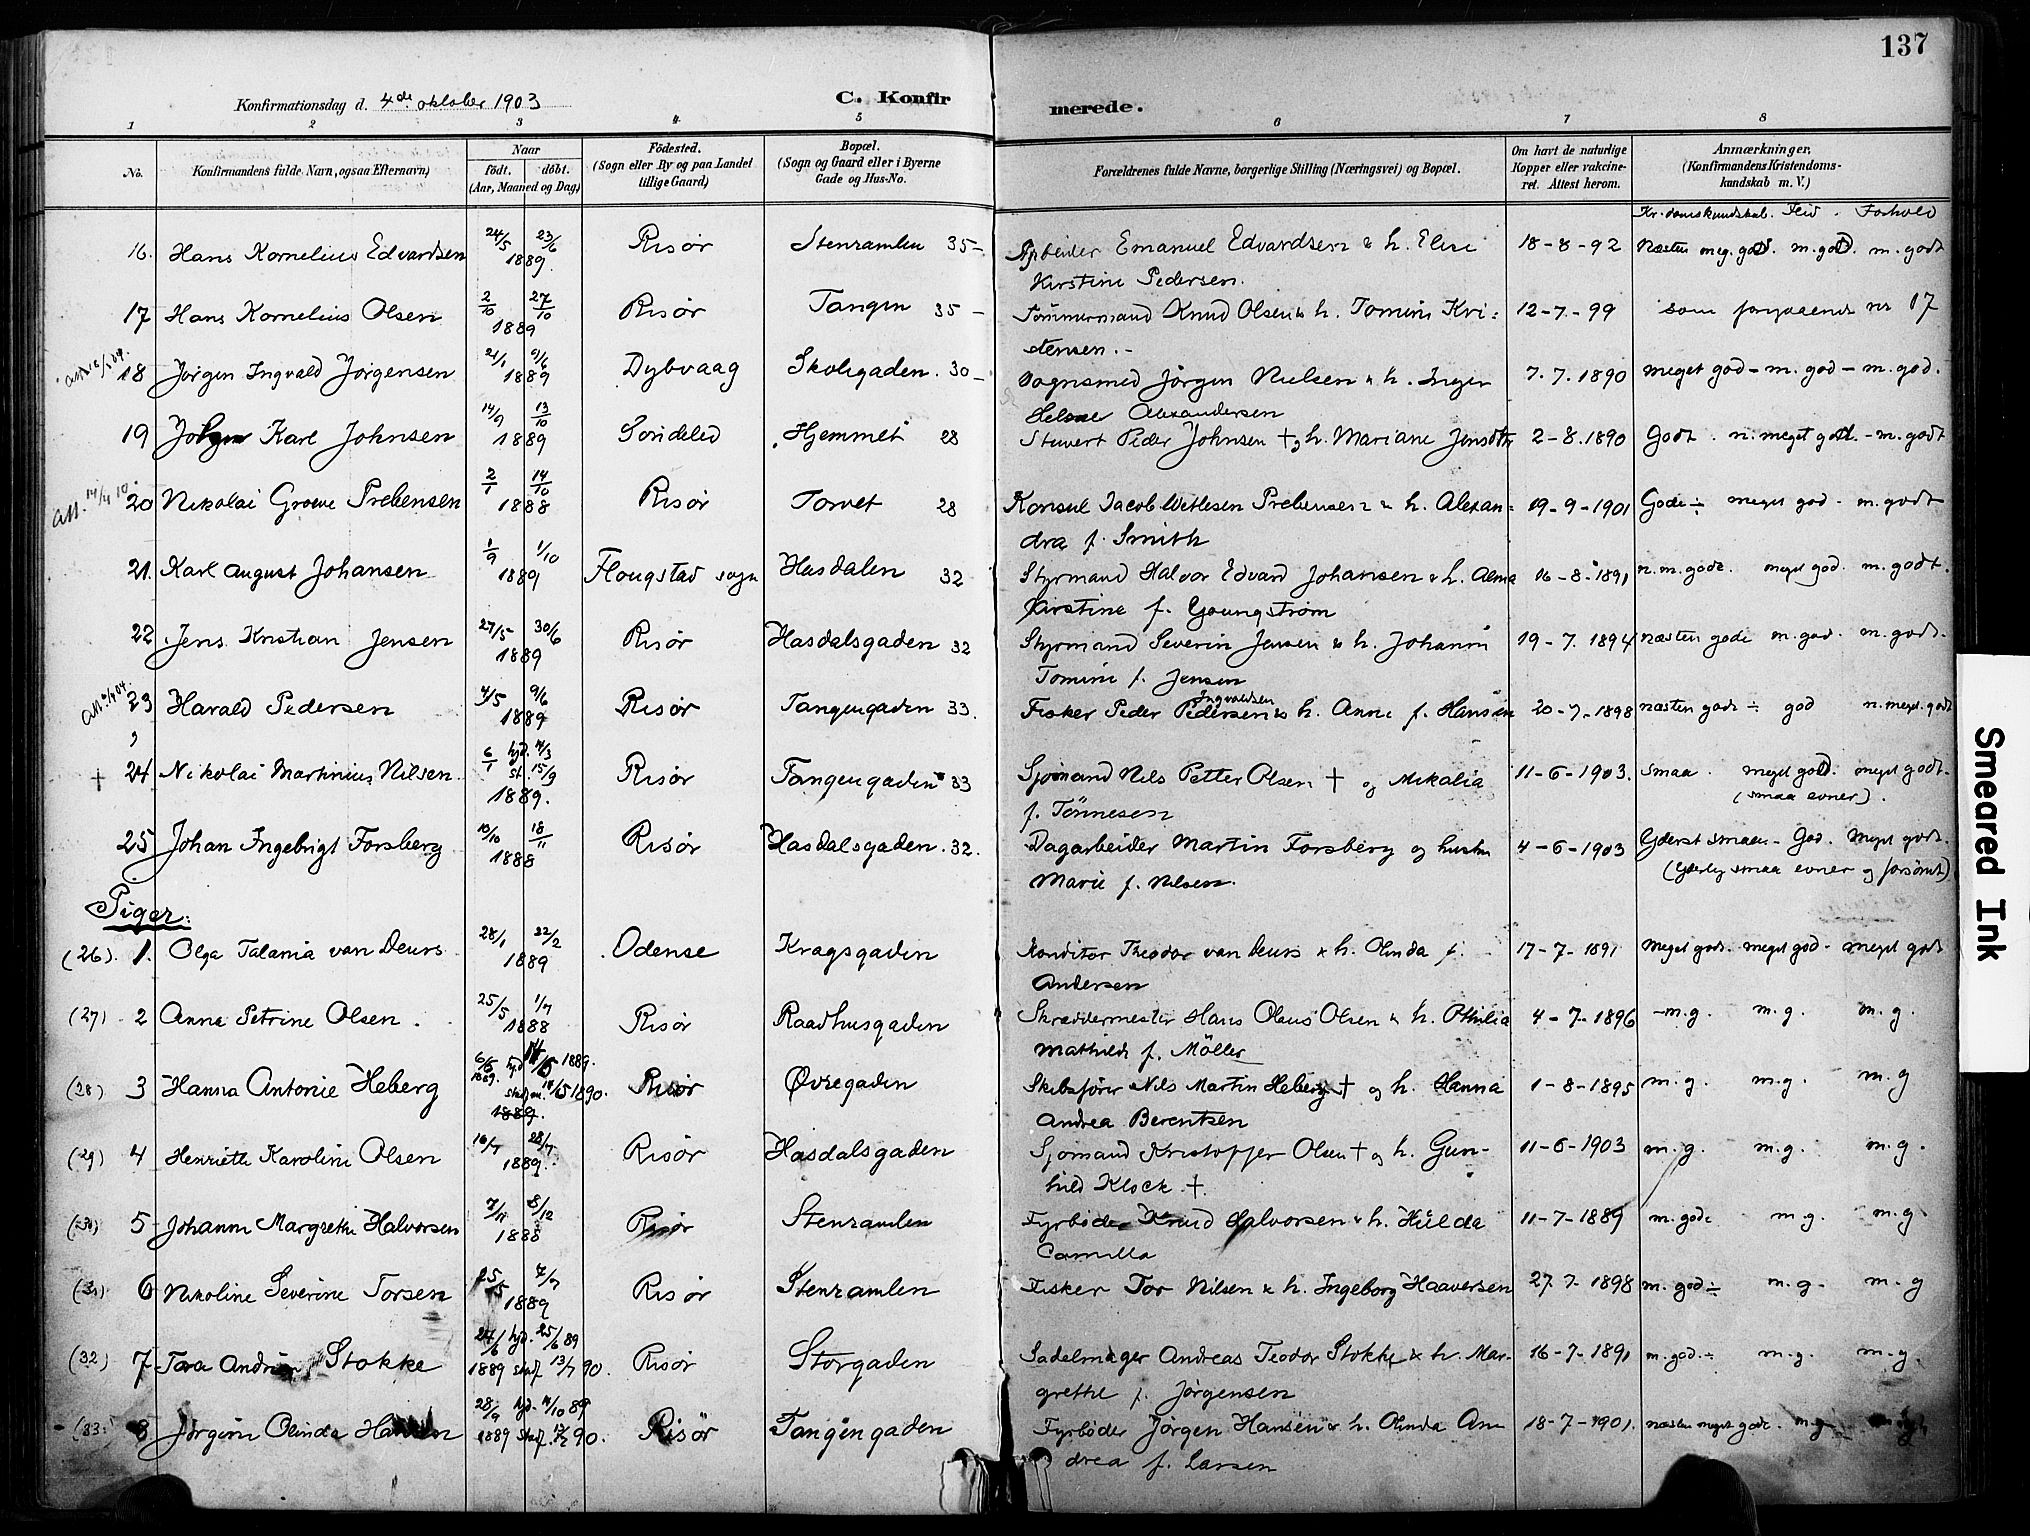 137
Konfirmationsdag d. 4de oktober 1903
C. Konfirmerede.
1 2 3 4 5 6 7 8
No. Konfirmandens fulde Navn, ogsaa Efternavn) Naar født. døbt. (Aar, Maaned og Dag) Fødested. (Sogn eller By og paa Landet tillige Gaard) Bopæl. (Sogn og Gaard eller i Byerne Gade og Hus-No. Forældrenes fulde Navne, borgerlige Stilling (Næringsvei) og Bopæl. Om havt de naturlige Kopper eller vakcineret. Attest herom. Anmærkninger. (Konfirmandens Kristendomskundskab m. V.)
Kr.domskundskab. Flid. Forhold
16. Hans Kornelius Edvardsen 24/5 23/6 1889. Risør Stenramlen 35 – Arbeider Emanuel Edvardsen & h. Elise 18-8-92 Næsten meg. godt. m. god. m. godt
Kirstine Pedersen.
17 Hans Kornelius Olsen 2/10 27/10 1889 Risør Tangen 35 – Tömmermand Knud Olsen & h. Tomine Kri= 12-7-99 som forgaaende nr 17
stensen. -
18 Jørgen Ingvald Jørgensen 21/1 9/6 1889 Dybvaag Skolegaden. 30 – Vognsmed Jörgen Nielsen & h. Inger 7.7.1890 meget god – m. god – m. god.
Helene Alexandersen
19 Karl Johnsen 14/9 13/10 1889 Söndeled Hjemmet 28 Stuvert Peder Johnsen † og h. Mariane 2-8.1890 Godt. n. meget godt. - m. godt
att. 14/4 10. 20 Nikolai Groeve Prebensen 2/1 14/10 1888 Risør Torvet 28 Konsul Jacob Wetlesen Prebensen & h. Alexan= 19-9-1901 Gode ÷ meget god - m. godt
dra f. Smith
21. Karl August Johansen 1/9 1/10 1889 Flougstad sogn Hasdalen 32 Styrmand Halvor Edvard Johansen & h. Alma 16-8-1891 n. m. gode. meget god. m. godt.
Kirstine f. Youngström
22 Jens Kristian Jensen 27/5 30/6 1889 Risør Hasdalsgaden 32 Styrmand Severin Jensen & h. Johanne 19-7.1894 næsten gode m. god. m. godt.
Tomine f. Jensen
23 Harald Pedersen 4/5 9/6 1889 Risør Tangengaden 33. Fisker Peder Pedersen & h. Anne f. Hansen 20-7-1898 næsten gode ÷ god n. meget. godt
Ingvaldsen
† 24 Nikolai Martinius Nilsen. 6/1 hjd. 4/3 st. 15/9 1889. Risør Tangengaden 33 Sjömand Nils Petter Olsen † og Mikalia 11-6-1903. Smaa. meget god. meget godt.
f. Tönnesen (smaa evner).
25 Johan Ingebrigt Forsberg 10/10 18/11 1888 Risør Hasdalsgaden. 32. Dagarbeider Martin Forsberg og hustru 4-6-1903 Yderst smaa. God. Meget godt.
Marie f. Nilsen. (Yderlig smaa evner og forsömt)
Piger:
(26). 1. Olga Talania van Deurs 28/1 22/2 1889 Odense Kragsgaden Konditor Theodor van Deurs & h. Olinda f. 17-7-1891 Meget god. meget god - meget godt
Andersen
(27) 2 Anna Petrine Olsen. 25/5 1/7 1888 Risør Raadhusgaden Skræddermester Hans Olaus Olsen & h. Othilia 4-7-1896 m.g. m.g. m.g.
Mathilde f. Möller
(28) 3 Hanna Antonie Heberg 6/5 1889. 1889. 1890. 1889. Risør Øvregaden Skibsfører Nils Martin Heberg † og h. Hanna 1-8-1895 m.g. m.g. m.g
Andrea Berentsen
(29) 4 Henriette Karoline Olsen 16/7 28/7 1889. Risør Hasdalsgaden Sjømand Kristoffer Olsen † og h. Gun- 11-6-1903 m.g. m.g. m.g.
hild Klock †.
(30) 5 Johanne Margrethe Halvorsen 7/11 8/12 1888 Risør Stenramlen Fyrbøder Knud Halvorsen & h. Hulda 11-7-1889 m. gode m.g. m.g
Camilla
(31) 6 Nikoline Severine Torsen 7/7 1889 Risør Stenramlen Fisker Tor Nilsen & h. Ingeborg Haaversen 27.7.1898 m. god ÷ m.g. m.g
(32) 7 Tora Stokke 24/6 hjd. 25/6 89 1889 stadf. 13/7 90. Risør Storgaden Sadelmager Andreas Teodor Stokke & h. Mar- 16-7-1891 m. god. ÷ m.g. m.g.
grethe f. Jørgensen
(33) 8 Jørgine Olinda 28/9 hjd. 4/10 89 1889 stadf. 90. Risør Tangengaden Fyrbøder Jørgen Hansen & h. Olinda An 18-7-1901. næsten meget gode. m.g.
drea f. Larsen
Smeared Ink